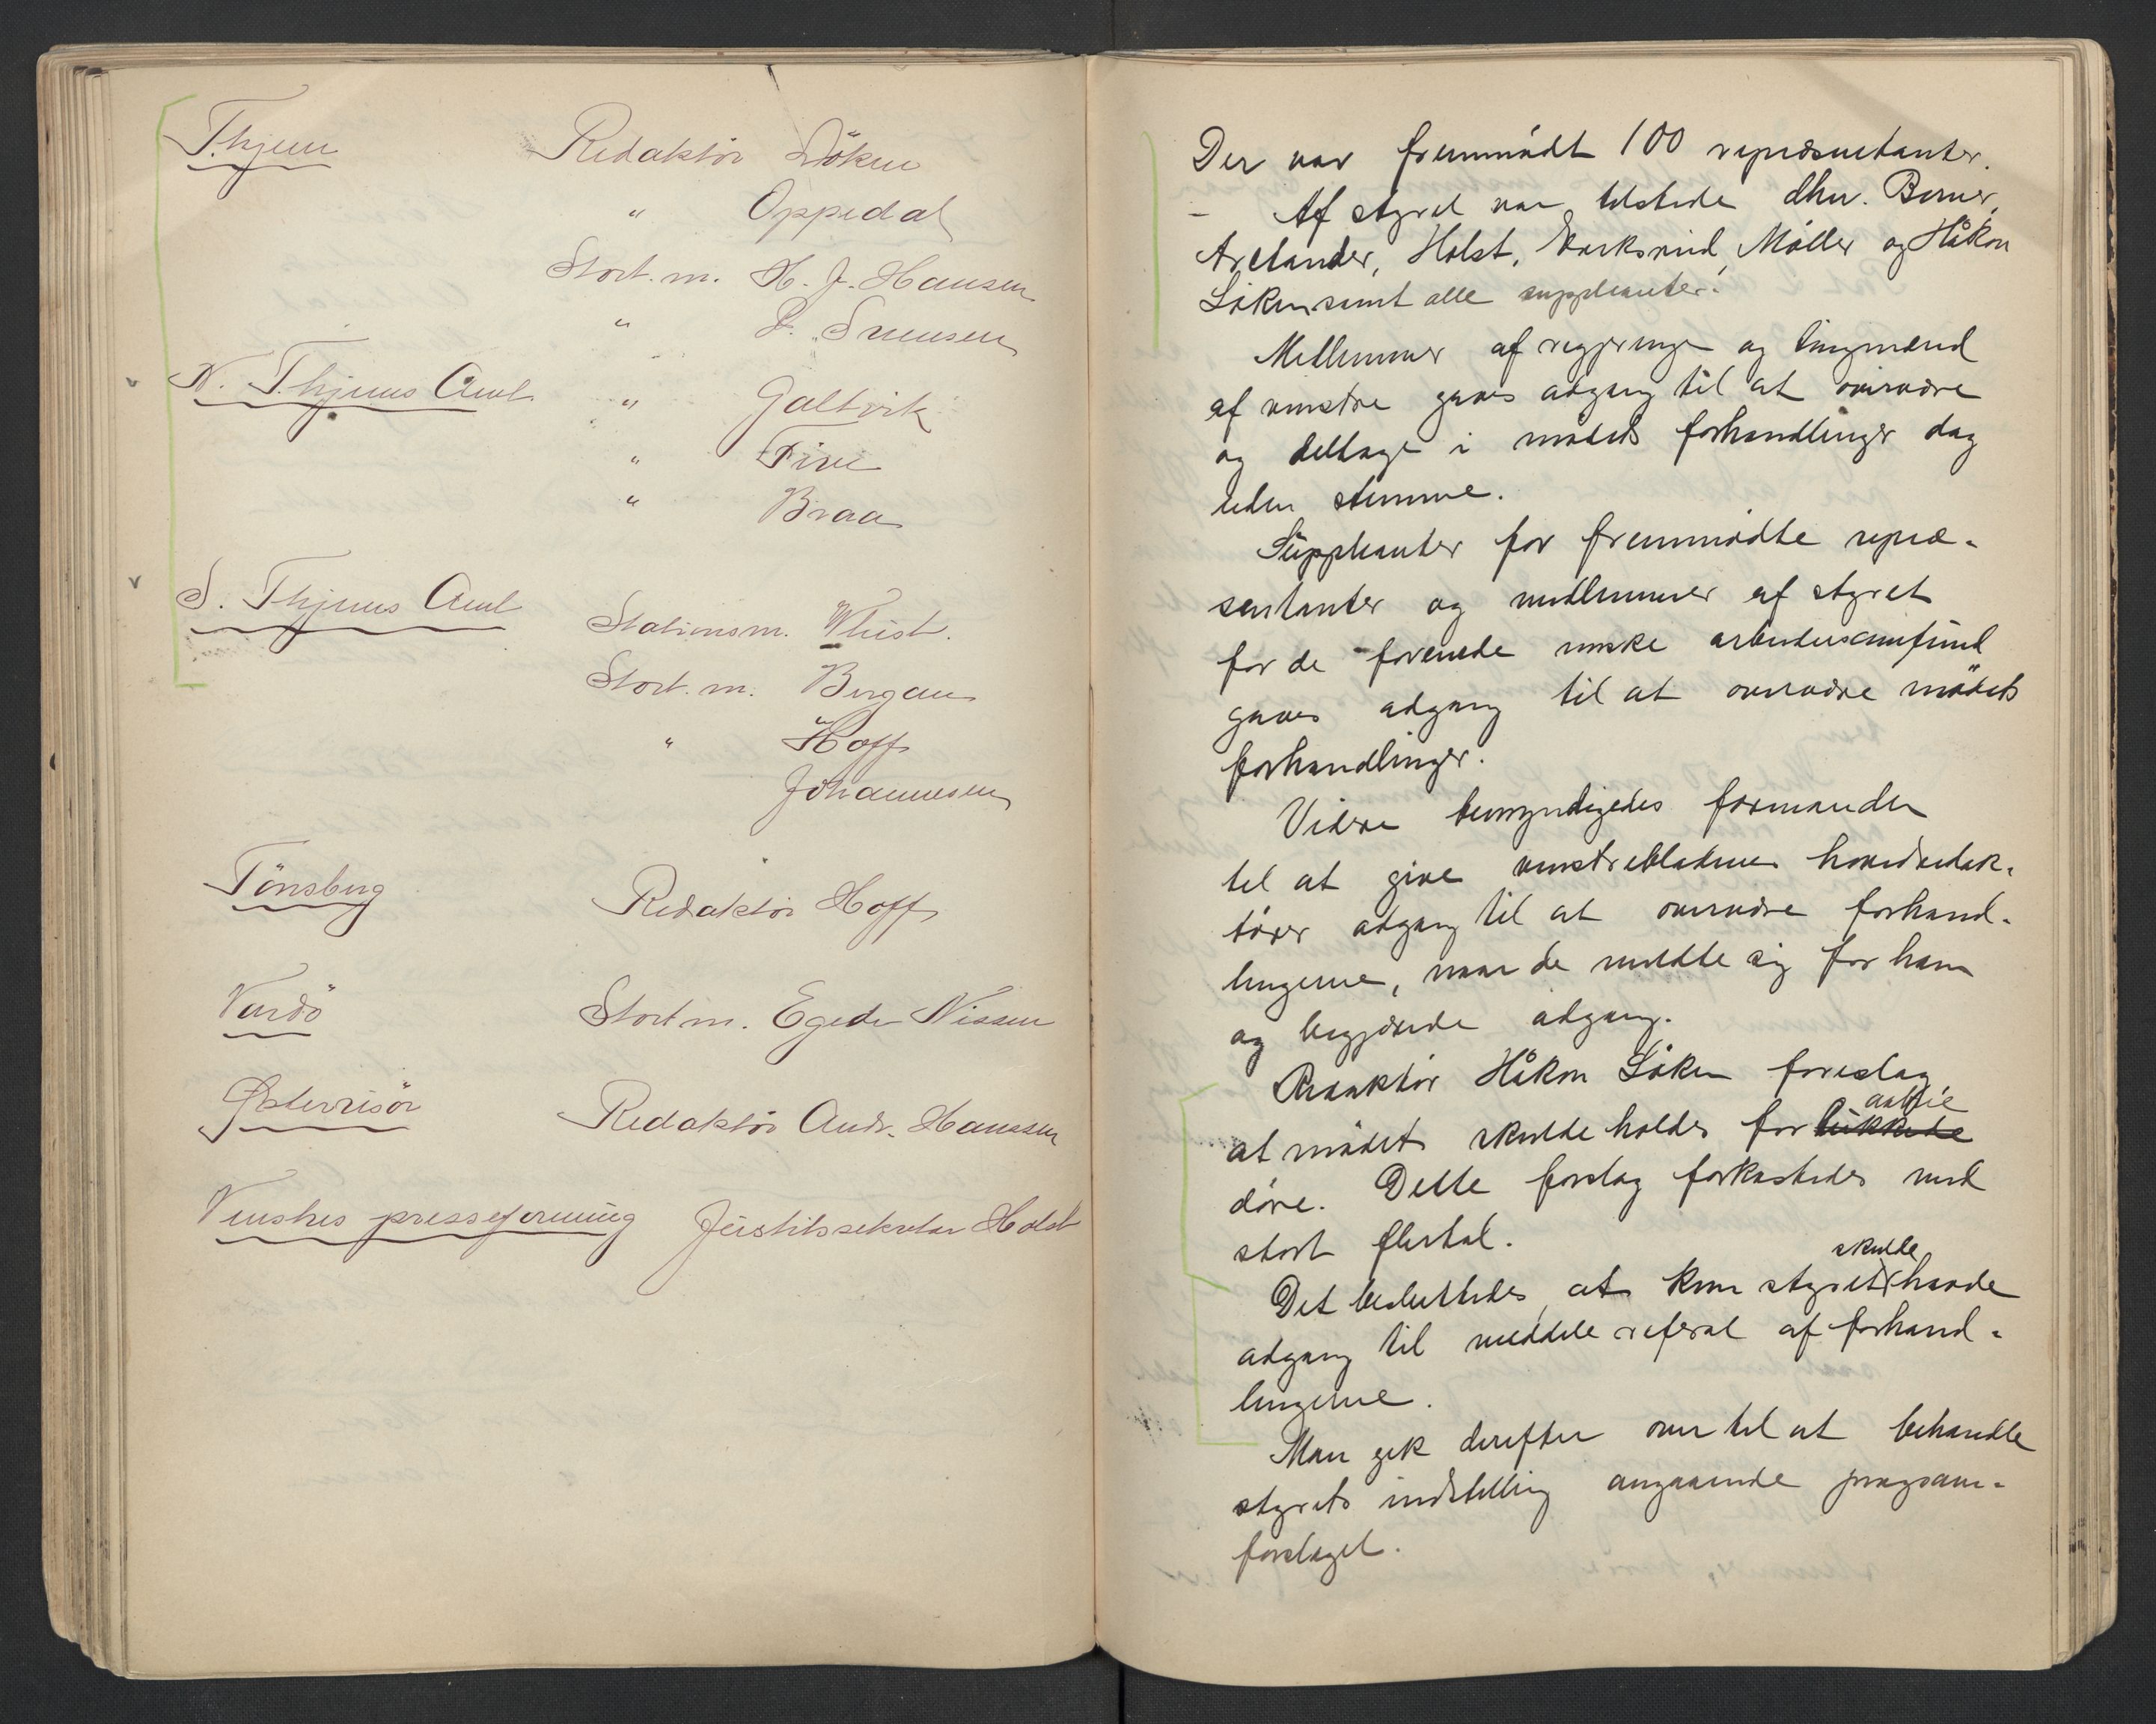 Thjem Redaktör Löken
" Oppedal
Stort. m. K. J. Hansen
" P. Svensen
N. Thjems Amt " Galtvik
" Five
" Braa
S. Thjems Amt Stationsm. Whist.
Stort. m. Bergan
" Hoff
Johannesen
Tönsberg Redaktör Hoff
Vardö Stortm. Egede Nissen
Østerrisör Redaktör Andr. Hanssen
Venstres presseforening Justitssekretær Holst
Der var fremmödt 100 repræsentanter.
- Af styret var tilstede dhrr. Berner,
Arctander, Holst, Møller og Håkon
Löken samt alle suppleanter.
Medlemmer af regjeringen og tingmænd
af venstre gaves adgang til at overvære
og deltage i mödets forhandlinger dog
uden stemme.
Suppleanter for fremmödte repræ-
sentanter og medlemmer af styret
for de forenede norske arbeidersamfund
gaves adgang til at overvære mödets
forhandlinger.
Videre bemyndigedes formanden
til at give venstrebladenes hovedredak-
törer adgang til at overvære forhand-
lingerne, naar de meldte sig for ham
og begjærede adgang.
Redaktör Håkon Löken foreslog
at mödet skulde holdes for lukkede aabne
döre. Dette forslag forkastedes med
stort flertal.
Det besluttedes, at kun styret skulde havde
adgang til meddele referat af forhand-
lingerne.
Man gik derefter over til at behandle
styrets indstilling angaaende program-
forslaget.